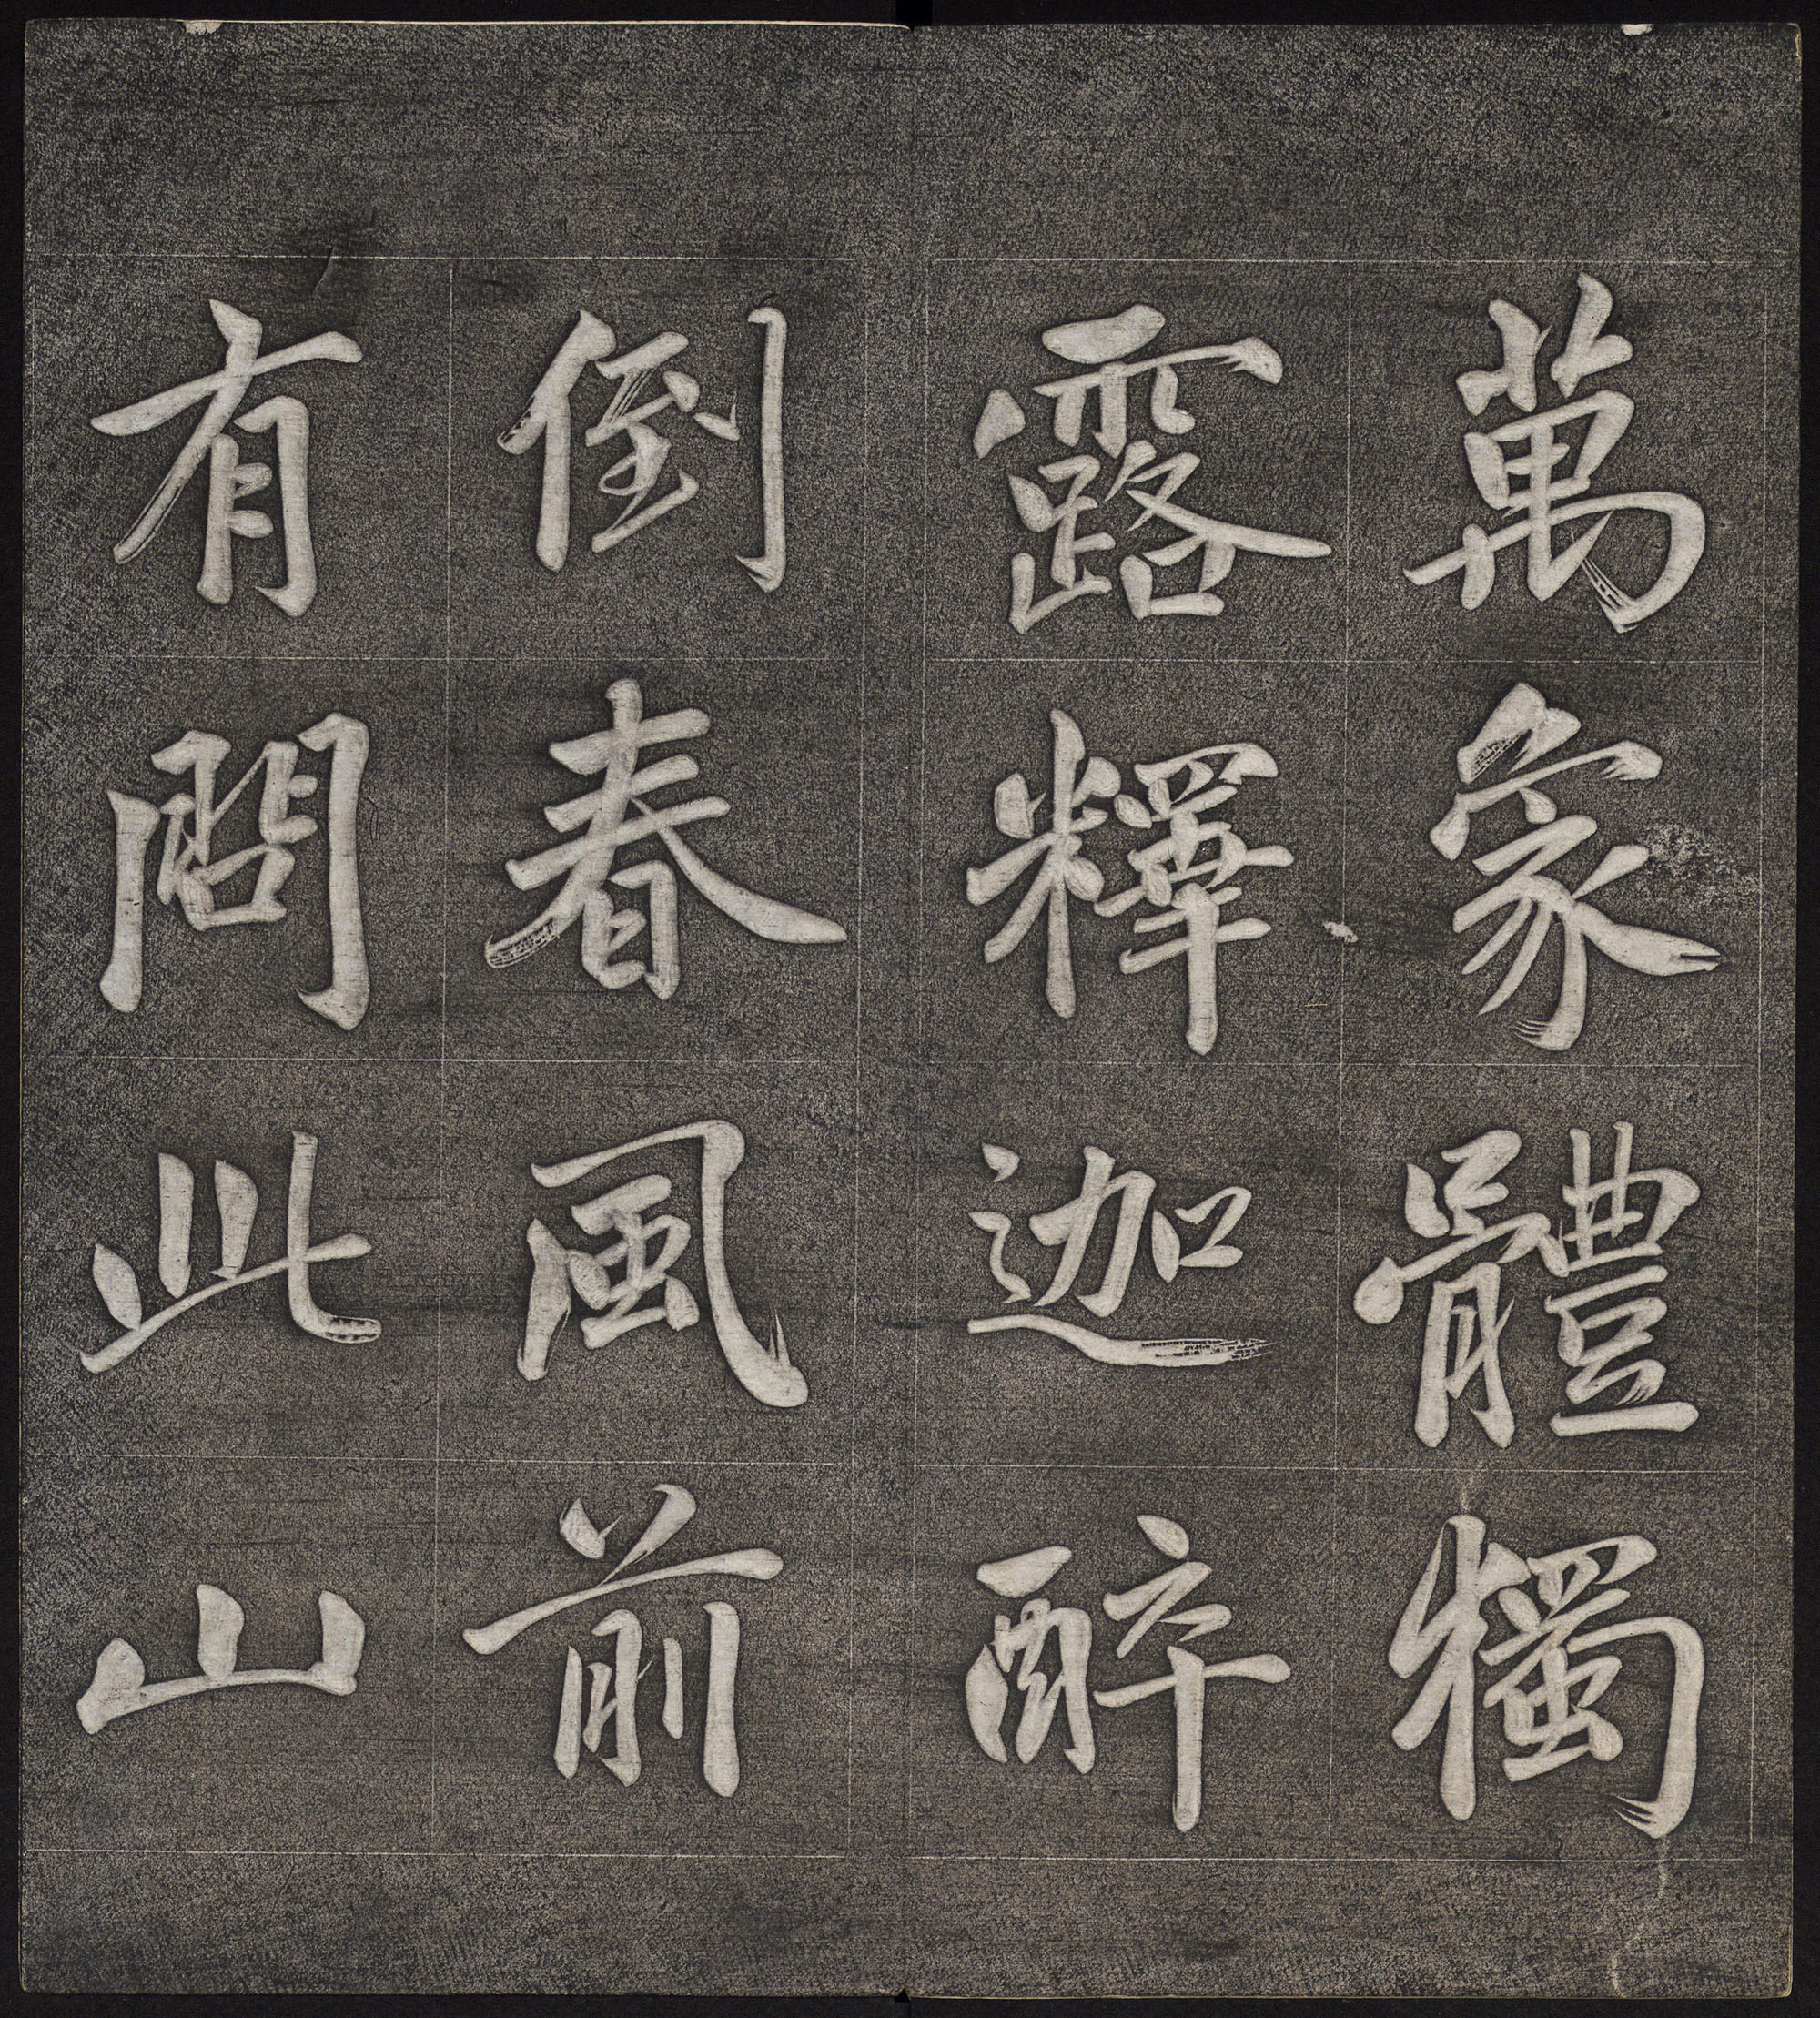 萬象體獨
露釋迦醉
倒春風前
有問此山